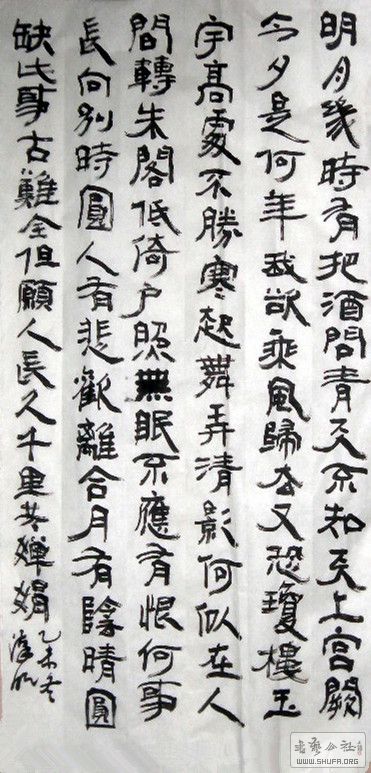 明月幾時有把酒問青天不知天上宮闕
今夕是何年我欲乘風歸去又恐瓊樓玉
宇高處不勝寒起舞弄清影何似在人
間轉朱閣低倚戶照無眠不應有恨何事
長向別時圓人有悲歡離合月有陰晴圓
缺此事古難全但願人長久千里共嬋娟
乙未冬
書藝公社
WWW.SHUFA.ORG